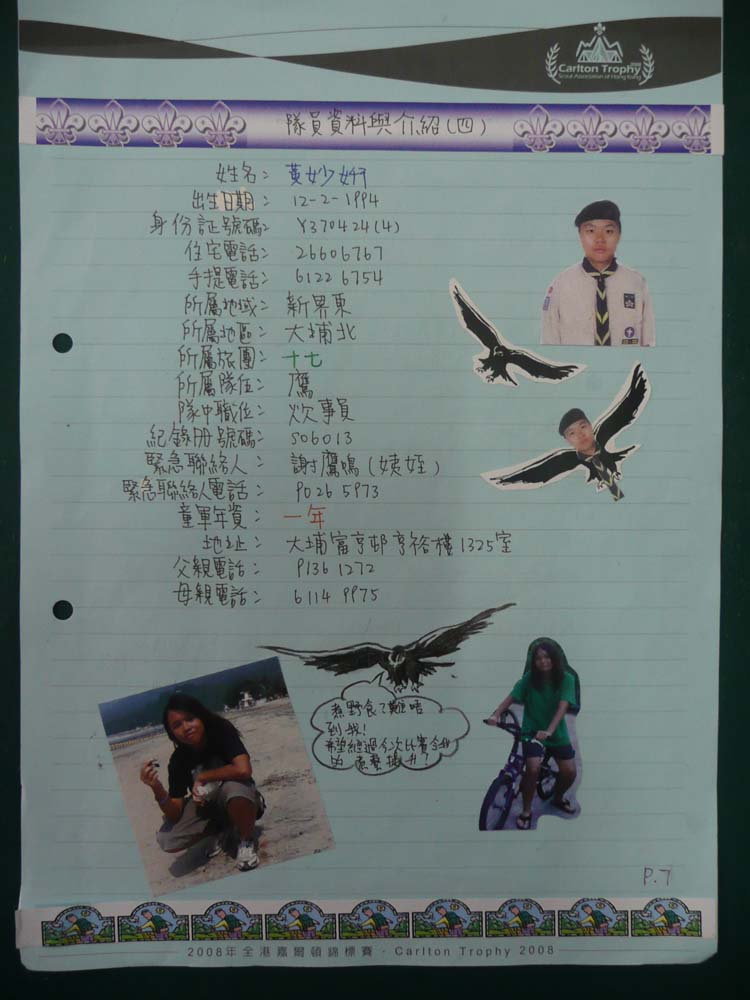 Carlton Trophy
Scout Association of Hong Kong
隊員資料與介紹(四)
姓名: 黃妙妍
出生日期: 12-2-1994
身份証號碼: Y370424(4)
住宅電話: 26606767
手提電話: 6122 6754
所屬地域: 新界東
所屬地區: 大埔北
所屬旅團: 十七
所屬隊伍: 鷹
隊中職位: 炊事員
紀錄冊號碼: S06013
緊急聯絡人: 謝鷹鳴(姨姪)
緊急聯絡人電話: 9026 5973
童軍年資: 一年
地址: 大埔富亨邨亨裕樓1325室
父親電話: 9136 1272
母親電話: 6114 9975
煮野食?難唔
到我!
希望經過今次比賽令我
P.7
2008年全港嘉爾頓錦標賽 · Carlton Trophy 2008